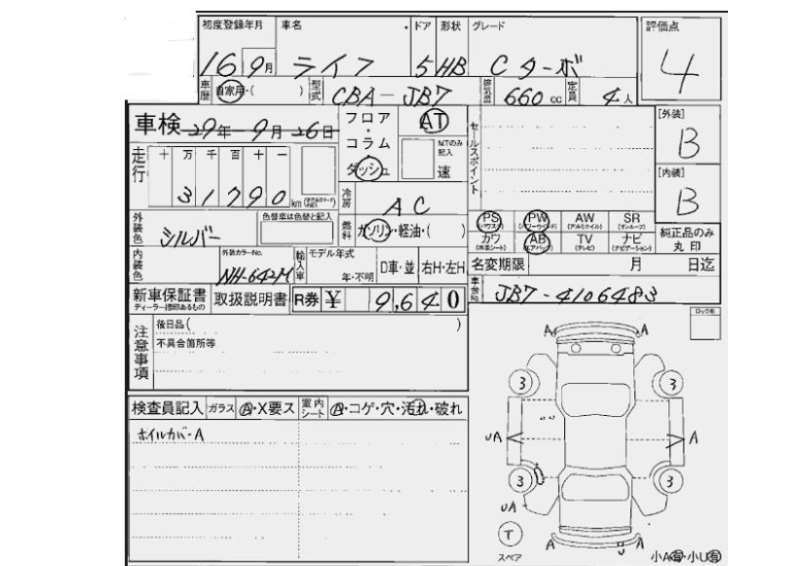 初度登録年月 車名 ドア 形状 グレード 評価点
16 9月 ライフ 5 HB Cターボ 4
車歴 自家用・( ) 型式 CBA-JB7 排気量 660 cc 定員 4人
車検 29年-9月26日 フロア・コラム ダッシュ AT MTのみ記入 速 セールスポイント [外装] B
走行 十 万 千 百 十 一
31790 km
冷房 AC [内装] B
外装色 シルバー 色替車は色替と記入 燃料 ガソリン・軽油・( )
PS PW AW SR
(パワステ) (パワーウインド) (アルミホイル) (サンルーフ)
カワ AB TV ナビ 純正品のみ丸印
(本革シート) (エアバッグ) (テレビ) (ナビゲーション)
内装色 外装カラーNo. NH-642M 輸入車 モデル年式 年・不明 D車・並 右H・左H 名変期限 月 日迄
新車保証書 取扱説明書 R券 ¥ 9,640 JB7-4106483
ディーラー捺印あるもの
注意事項 後日品( )
不具合箇所等
検査員記入 ガラス A・X要ス 室内シート A・コゲ・穴・汚れ・破れ
ホイルカバ・A
A A
3 3
UA A
3 3
UA
T
スペア
A U A
小A有・小U有